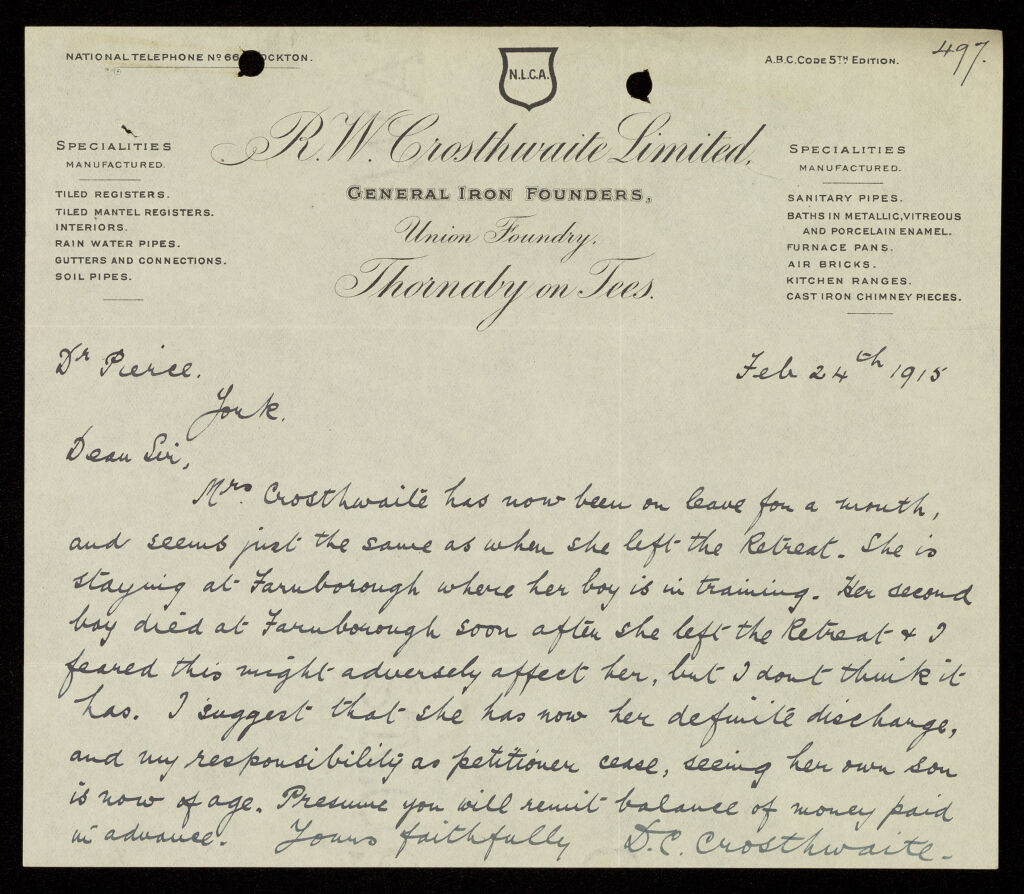 497.
NATIONAL TELEPHONE Nº 66 OCKTON.
N.L.C.A.
A.B.C. CODE 5TH EDITION.
R.W. Crosthwaite Limited,
GENERAL IRON FOUNDERS,
Union Foundry,
Thornaby on Tees.
SPECIALITIES
MANUFACTURED.
TILED REGISTERS.
TILED MANTEL REGISTERS.
INTERIORS.
RAIN WATER PIPES.
GUTTERS AND CONNECTIONS.
SOIL PIPES.
SPECIALITIES
MANUFACTURED.
SANITARY PIPES.
BATHS IN METALLIC, VITREOUS
AND PORCELAIN ENAMEL.
FURNACE PANS.
AIR BRICKS.
KITCHEN RANGES.
CAST IRON CHIMNEY PIECES.
Feb 24th 1915
Dr Pierce.
York.
Dear Sir,
Mrs. Crosthwaite has now been on leave for a month,
and seems just the same as when she left the Retreat. She is
staying at Farnborough where her boy is in training. Her second
boy died at Farnborough soon after she left the Retreat & I
feared this might adversely affect her, but I dont think it
has. I suggest that she has now her definite discharge,
and my responsibility as petitioner cease, seeing her own son
is now of age. Presume you will remit balance of money paid
in advance. Yours faithfully D.C. Crosthwaite.